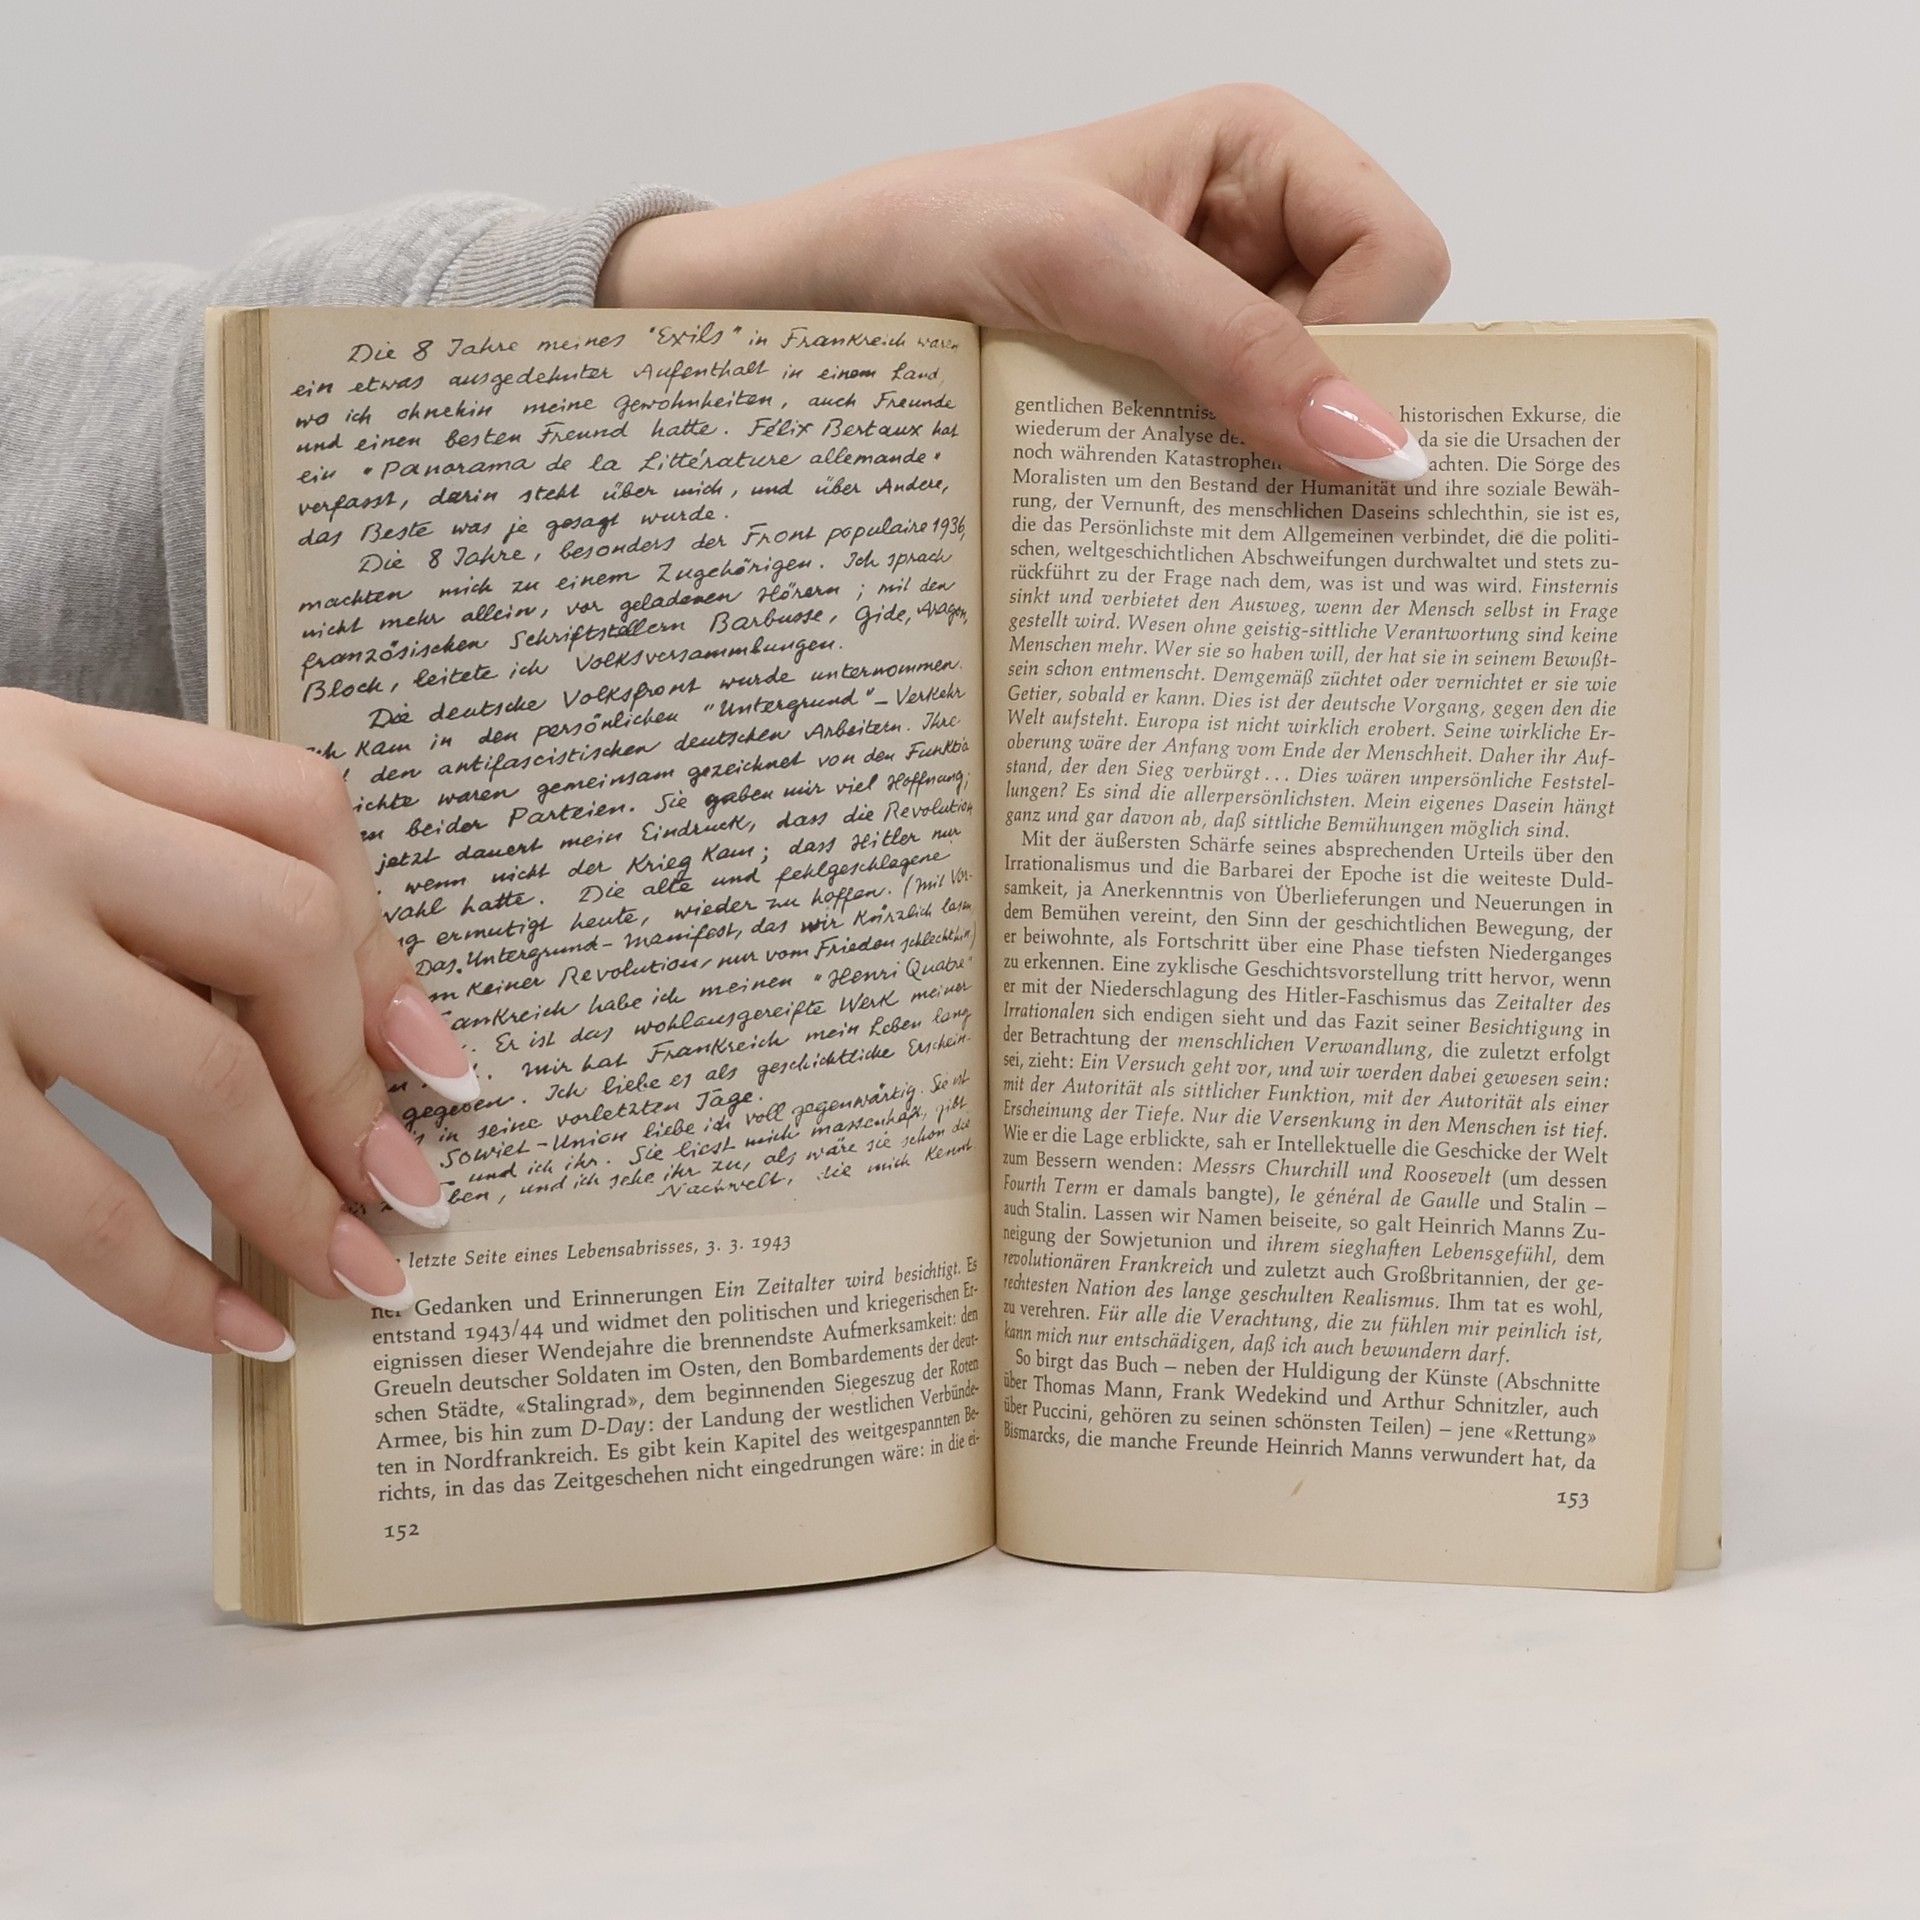 Die 8 Jahre meines "Exils" in Frankreich waren
ein etwas ausgedehnter Aufenthalt in einem Land,
wo ich ohnehin meine Gewohnheiten, auch Freunde
und einen besten Freund hatte. Félix Bertaux hat
ein "Panorama de la Littérature allemande"
verfasst, darin steht über mich, und über Andere,
das Beste was je gesagt wurde.
Die 8 Jahre, besonders der Front populaire 1936,
machten mich zu einem Zugehörigen. Ich sprach
nicht mehr allein, vor geladenen Hörern; mit den
französischen Schriftstellern Barbusse, Gide, Aragon,
Bloch, leitete ich Volksversammlungen.
Die deutsche Volksfront wurde unternommen.
Kam in den persönlichen "Untergrund"-Verkehr
den antifascistischen deutschen Arbeitern. Ihre
ichte waren gemeinsam gezeichnet von den Funktio
beider Parteien. Sie gaben mir viel Hoffnung;
jetzt dauert mein Eindruck, dass die Revolution
wenn nicht der Krieg Kam; dass Hitler nur
wahl hatte. Die alte und fehlgeschlagene
ng ermutigt heute, wieder zu hoffen. (Mit Vor-
Das "Untergrund-Manifest, das wir Kürzlich lasen,
Keiner Revolution, nur vom Frieden schlechthin)
ankreich habe ich meinen "Henri Quatre"
Er ist das wohlausgereifte Werk meiner
mir hat Frankreich mein Leben lang
gegeben. Ich liebe es als geschichtliche Erschein-
in seine vorletzten Tage.
Soviet-Union liebe ich voll gegenwärtig. Sie ist
und ich ihr. Sie liest mich massenhaft, gibt
ben, und ich sehe ihr zu, als wäre sie schon die
Nachwelt, die mich Kennt
letzte Seite eines Lebensabrisses, 3. 3. 1943
ner Gedanken und Erinnerungen Ein Zeitalter wird besichtigt. Es
entstand 1943/44 und widmet den politischen und kriegerischen Er-
eignissen dieser Wendejahre die brennendste Aufmerksamkeit: den
Greueln deutscher Soldaten im Osten, den Bombardements der deut-
schen Städte, «Stalingrad», dem beginnenden Siegeszug der Roten
Armee, bis hin zum D-Day: der Landung der westlichen Verbünde-
ten in Nordfrankreich. Es gibt kein Kapitel des weitgespannten Be-
richts, in das das Zeitgeschehen nicht eingedrungen wäre: in die ei-
152
gentlichen Bekenntniss historischen Exkurse, die
wiederum der Analyse de da sie die Ursachen der
noch währenden Katastrophen achten. Die Sorge des
Moralisten um den Bestand der Humanität und ihre soziale Bewäh-
rung, der Vernunft, des menschlichen Daseins schlechthin, sie ist es,
die das Persönlichste mit dem Allgemeinen verbindet, die die politi-
schen, weltgeschichtlichen Abschweifungen durchwaltet und stets zu-
rückführt zu der Frage nach dem, was ist und was wird. Finsternis
sinkt und verbietet den Ausweg, wenn der Mensch selbst in Frage
gestellt wird. Wesen ohne geistig-sittliche Verantwortung sind keine
Menschen mehr. Wer sie so haben will, der hat sie in seinem Bewußt-
sein schon entmenscht. Demgemäß züchtet oder vernichtet er sie wie
Getier, sobald er kann. Dies ist der deutsche Vorgang, gegen den die
Welt aufsteht. Europa ist nicht wirklich erobert. Seine wirkliche Er-
oberung wäre der Anfang vom Ende der Menschheit. Daher ihr Auf-
stand, der den Sieg verbürgt... Dies wären unpersönliche Feststel-
lungen? Es sind die allerpersönlichsten. Mein eigenes Dasein hängt
ganz und gar davon ab, daß sittliche Bemühungen möglich sind.
Mit der äußersten Schärfe seines absprechenden Urteils über den
Irrationalismus und die Barbarei der Epoche ist die weiteste Duld-
samkeit, ja Anerkenntnis von Überlieferungen und Neuerungen in
dem Bemühen vereint, den Sinn der geschichtlichen Bewegung, der
er beiwohnte, als Fortschritt über eine Phase tiefsten Niederganges
zu erkennen. Eine zyklische Geschichtsvorstellung tritt hervor, wenn
er mit der Niederschlagung des Hitler-Faschismus das Zeitalter des
Irrationalen sich endigen sieht und das Fazit seiner Besichtigung in
der Betrachtung der menschlichen Verwandlung, die zuletzt erfolgt
sei, zieht: Ein Versuch geht vor, und wir werden dabei gewesen sein:
mit der Autorität als sittlicher Funktion, mit der Autorität als einer
Erscheinung der Tiefe. Nur die Versenkung in den Menschen ist tief.
Wie er die Lage erblickte, sah er Intellektuelle die Geschicke der Welt
zum Bessern wenden: Messrs Churchill und Roosevelt (um dessen
Fourth Term er damals bangte), le général de Gaulle und Stalin –
auch Stalin. Lassen wir Namen beiseite, so galt Heinrich Manns Zu-
neigung der Sowjetunion und ihrem sieghaften Lebensgefühl, dem
revolutionären Frankreich und zuletzt auch Großbritannien, der ge-
rechtesten Nation des lange geschulten Realismus. Ihm tat es wohl,
zu verehren. Für alle die Verachtung, die zu fühlen mir peinlich ist,
kann mich nur entschädigen, daß ich auch bewundern darf.
So birgt das Buch – neben der Huldigung der Künste (Abschnitte
über Thomas Mann, Frank Wedekind und Arthur Schnitzler, auch
über Puccini, gehören zu seinen schönsten Teilen) – jene «Rettung»
Bismarcks, die manche Freunde Heinrich Manns verwundert hat, da
153